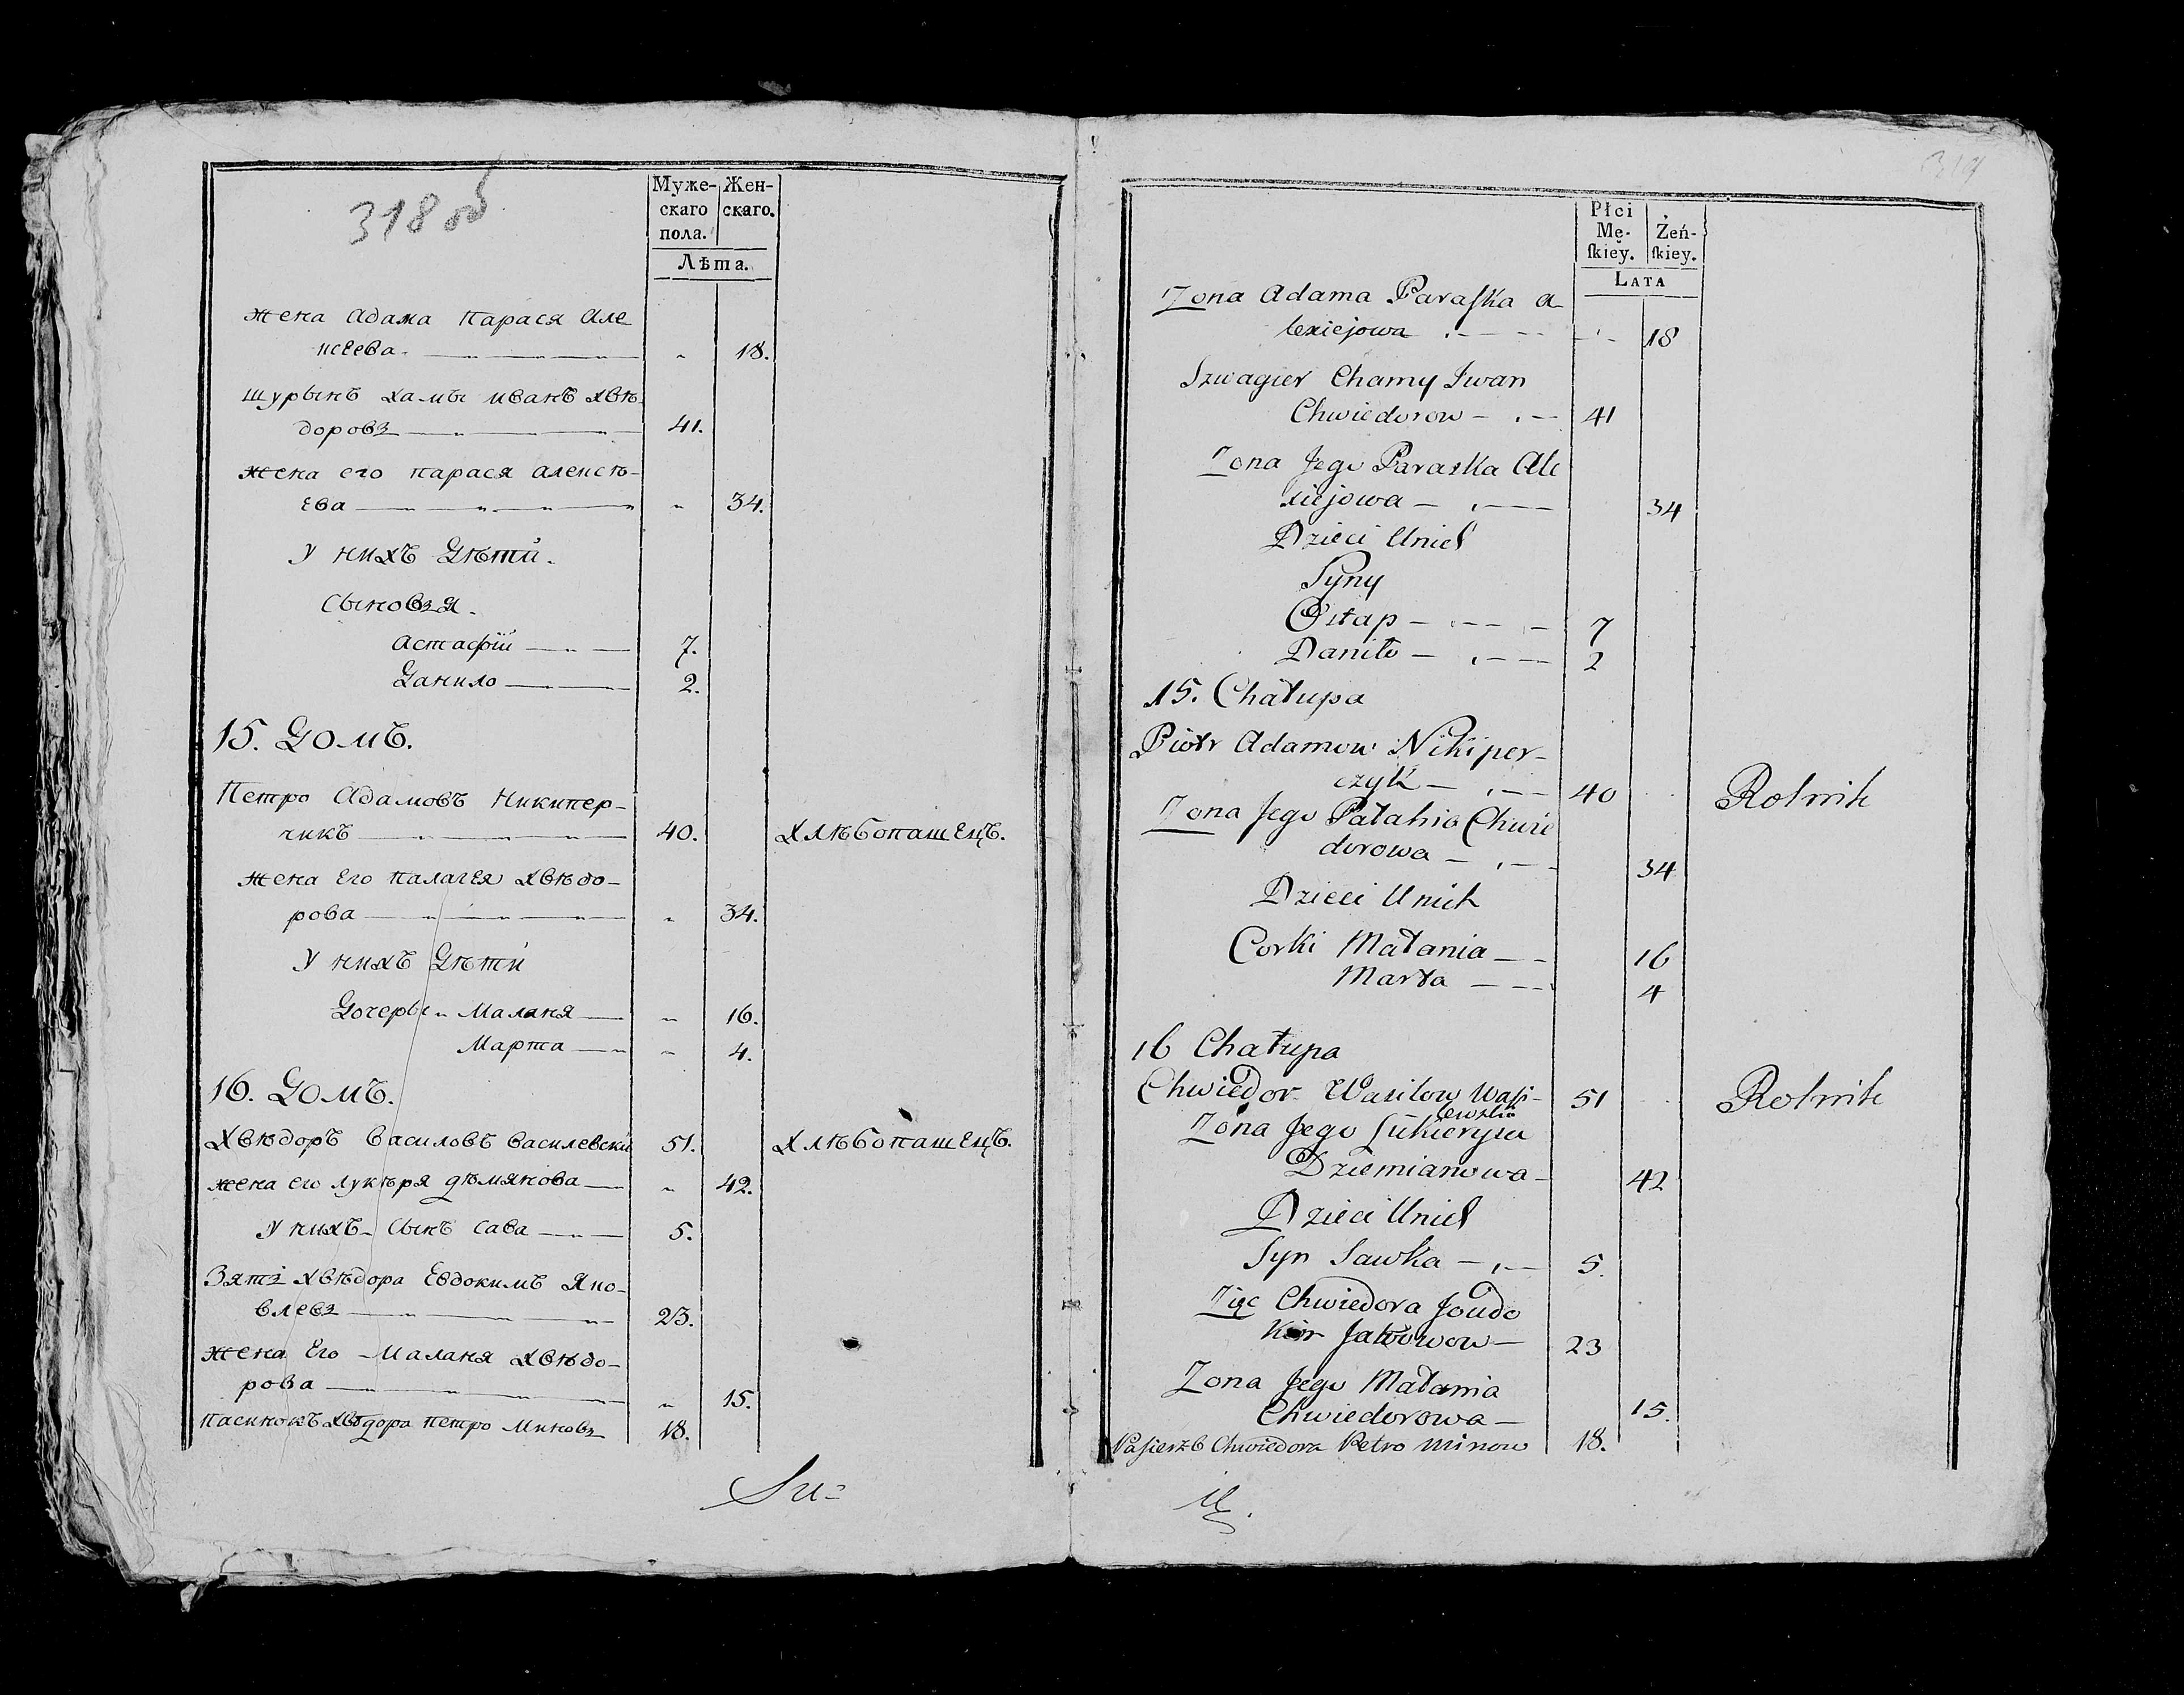 318 об
Муже- Жен-
скаго скаго.
пола.
Лѣта.
жена Адама Парася Але
ксеева 18.
шурынъ Хамы иванъ Хвѣ-
доровъ 41.
жена его парася алексѣ-
ева 34.
У нихъ Дѣти.
Сыновья.
Астафiй 7.
Данило 2.
15. Домъ.
Петро Адамовъ Никипер-
чикъ 40. Хлѣбопашецъ.
жена Его палагея Хвѣдо-
рова 34.
У нихъ Дѣти
Дочеры Маланя 16.
Марта 4.
16. Домъ.
Хвѣдоръ василовъ василевски 51. Хлѣбопашецъ.
жена его лукѣря дѣмянова 42.
У нихъ сынъ сава 5.
Зять Хвѣдора Евдокимъ Яко-
влевъ 23.
жена Его Маланя Хвѣдо-
рова 15.
пасинокъ Хвѣдора петро Миновъ 18.
Płci
Mę- Żeń-
skiey. skiey.
LATA
Zona Adama Paraska A
lexiejowa 18
Szwagier Chamy Iwan
Chwiedorow 41
Zona Jego Paraska Ale
xiejowa 34
Dzieci Unich
Syny
Ostap 7
Daniło 2
15. Chałupa
Piotr Adamow Nikiper-
czyk 40 Rolnik
Zona Jego Pałahia Chwie
dorowa 34
Dzieci Unich
Corki Małania 16
Marta 4
16 Chałupa
Chwiedor Wasilow Wasi- 51 Rolnik
lewski
Zona Jego Łukierya
Dziemianowa 42
Dzieci Unich
Syn Sawka 5.
Zięc Chwiedora Joudo
kim 23
Zona Jego Małania
Chwiedorowa 15.
Pasierzb Chwiedora Petro Minow 18.